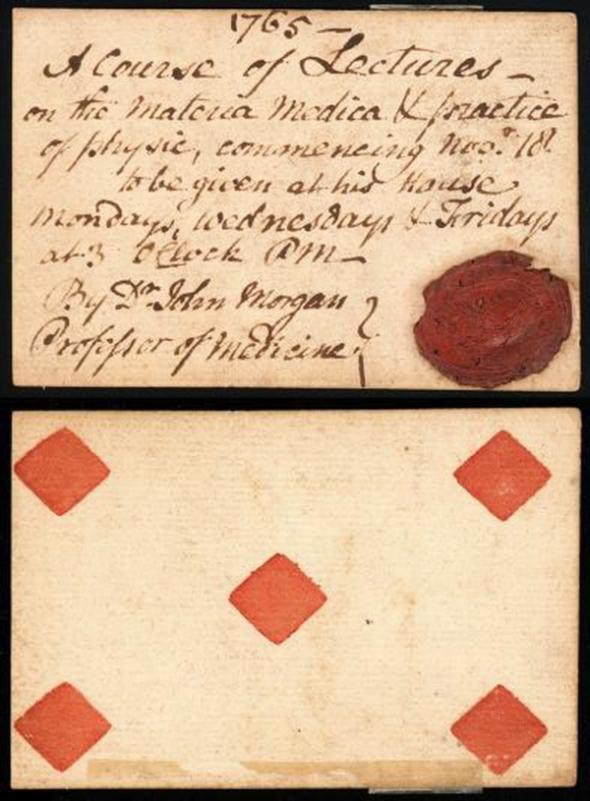 1765 —
A Course of Lectures —
on the Materia Medica & practice
of physic, commencing Nov.r 18.
to be given at his House
Mondays, Wednesdays & Fridays
at 3 O'Clock P M —
By Dr. John Morgan
Professor of Medicine